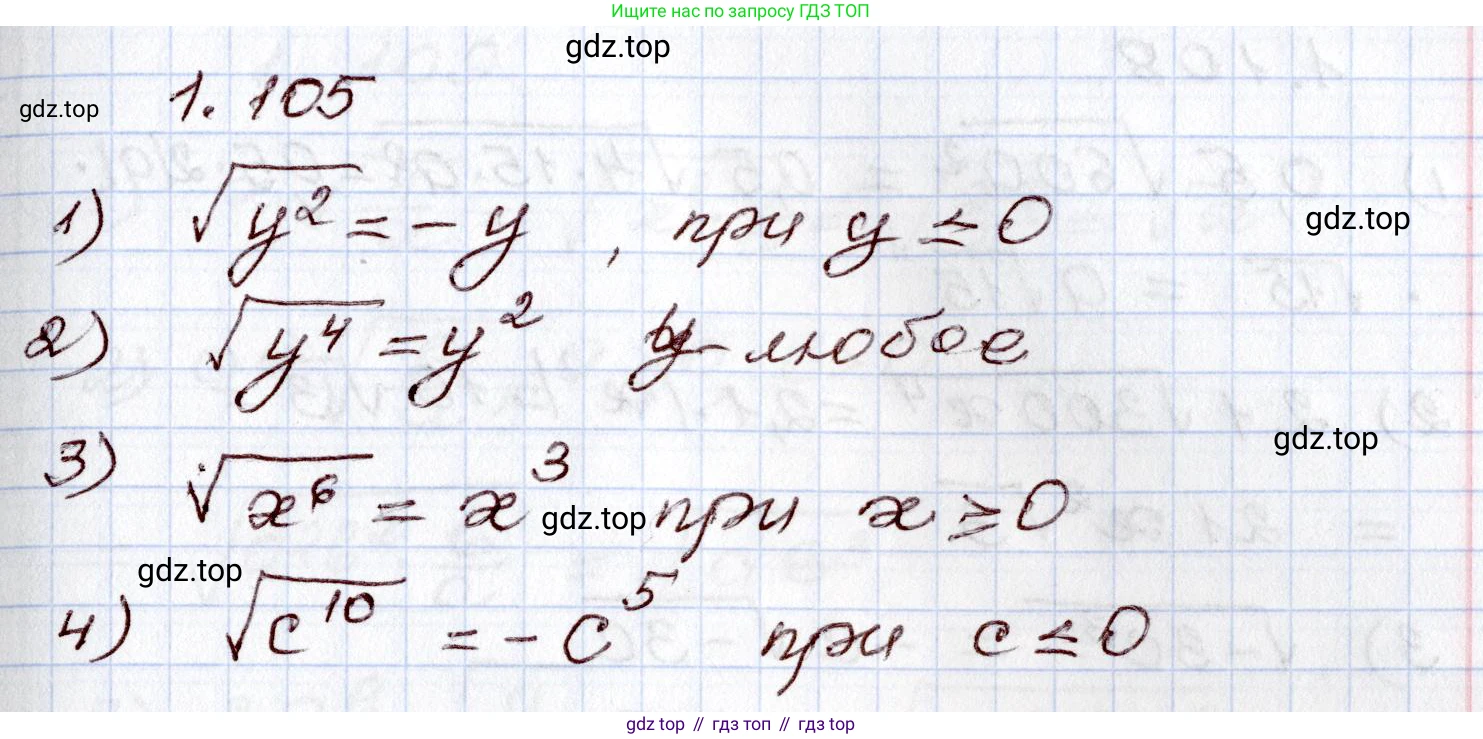 Ищите нас по запросу ГДЗ ТОП
gdz.top
gdz.top 1. 105
1) √y² = - y , при y ≤ 0 gdz.top
2) √y⁴ = y² y - любое
gdz.top
3) √x⁶ = x³ gdz.top при x ≥ 0
gdz.top
4) √c¹⁰ = - c⁵ при c ≤ 0
gdz.top // гдз топ // гдз top